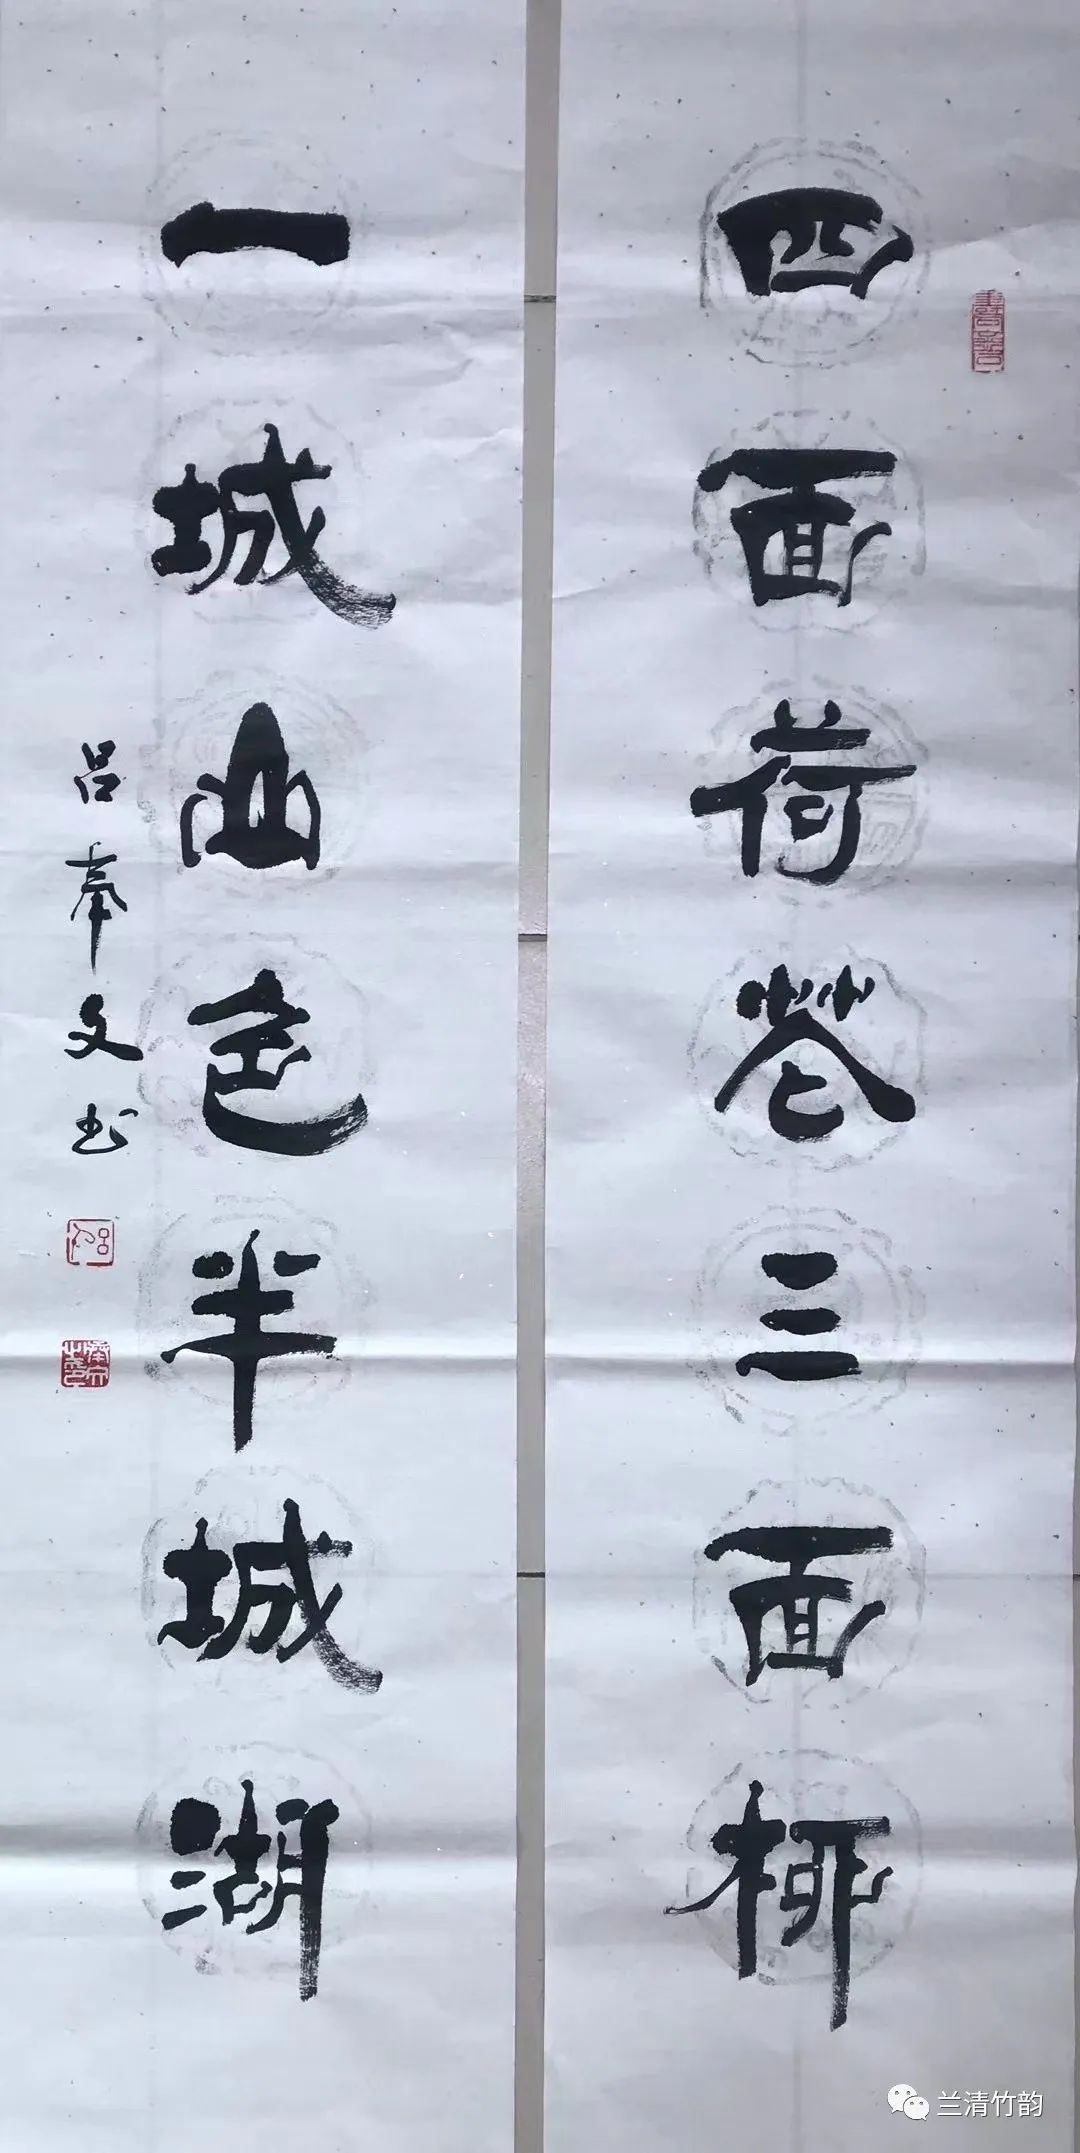 四面荷花三面柳
一城山色半城湖
吕奉文书
兰清竹韵